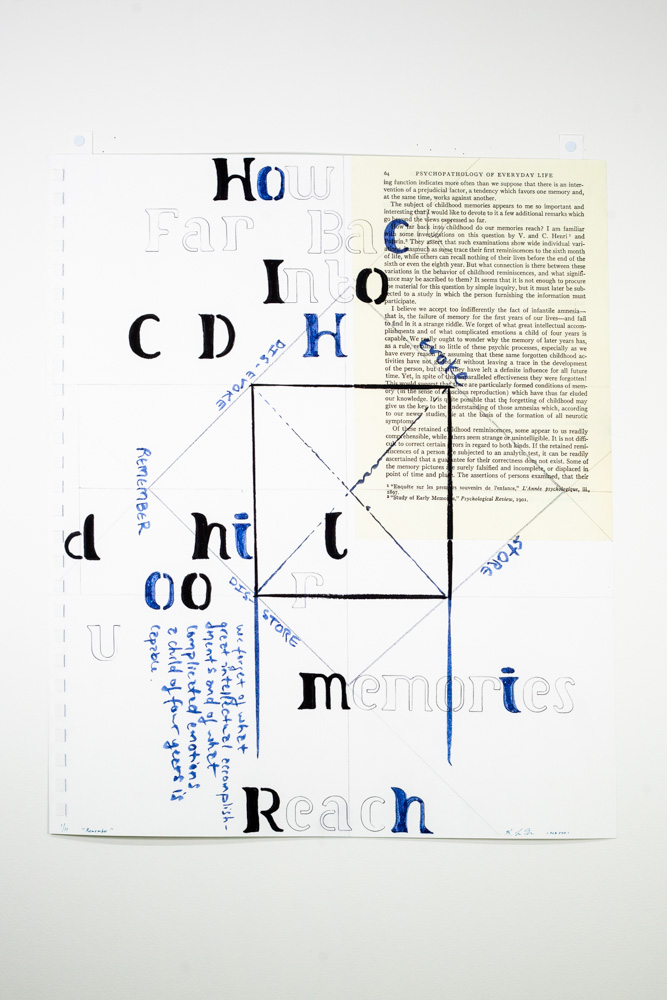 How
Far Back
Into
C D H
d nit
oo r
u
memories
Reach
64 PSYCHOPATHOLOGY OF EVERYDAY LIFE
ing function indicates more often than we suppose that there is an inter-
vention of a prejudicial factor, a tendency which favors one memory and,
at the same time, works against another.
The subject of childhood memories appears to me so important and
interesting that I would like to devote to it a few additional remarks which
go beyond the views expressed so far.
How far back into childhood do our memories reach? I am familiar
with some investigations on this question by V. and C. Henri ¹ and
They assert that such examinations show wide individual vari-
inasmuch as some trace their first reminiscences to the sixth month
of life, while others can recall nothing of their lives before the end of the
sixth or even the eighth year. But what connection is there between these
variations in the behavior of childhood reminiscences, and what signifi-
cance may be ascribed to them? It seems that it is not enough to procure
the material for this question by simple inquiry, but it must later be sub-
jected to a study in which the person furnishing the information must
participate.
I believe we accept too indifferently the fact of infantile amnesia—
that is, the failure of memory for the first years of our lives—and fail
to find in it a strange riddle. We forget of what great intellectual accom-
plishments and of what complicated emotions a child of four years is
capable. We really ought to wonder why the memory of later years has,
as a rule, retained so little of these psychic processes, especially as we
have every reason for assuming that these same forgotten childhood ac-
tivities have not glided off without leaving a trace in the development
of the person, but that they have left a definite influence for all future
time. Yet, in spite of this unparalleled effectiveness they were forgotten!
This would suggest that there are particularly formed conditions of mem-
ory (in the sense of conscious reproduction) which have thus far eluded
our knowledge. It is quite possible that the forgetting of childhood may
give us the key to the understanding of those amnesias which, according
to our newer studies, lie at the basis of the formation of all neurotic
symptoms.
Of these retained childhood reminiscences, some appear to us readily
comprehensible, while others seem strange or unintelligible. It is not diffi-
cult to correct certain errors in regard to both kinds. If the retained remi-
niscences of a person are subjected to an analytic test, it can be readily
ascertained that a guarantee for their correctness does not exist. Some of
the memory pictures are surely falsified and incomplete, or displaced in
point of time and place. The assertions of persons examined, that their
¹ "Enquête sur les premiers souvenirs de l'enfance," L'Année psychologique, iii.,
1897.
² "Study of Early Memories," Psychological Review, 1901.
DIS-EVOKE
EVOKE
REMEMBER
STORE
DIS-STORE
we forget of what
great intellectual accomplish-
ments and of what
complicated emotions
a child of four years is
capable.
"Remember"